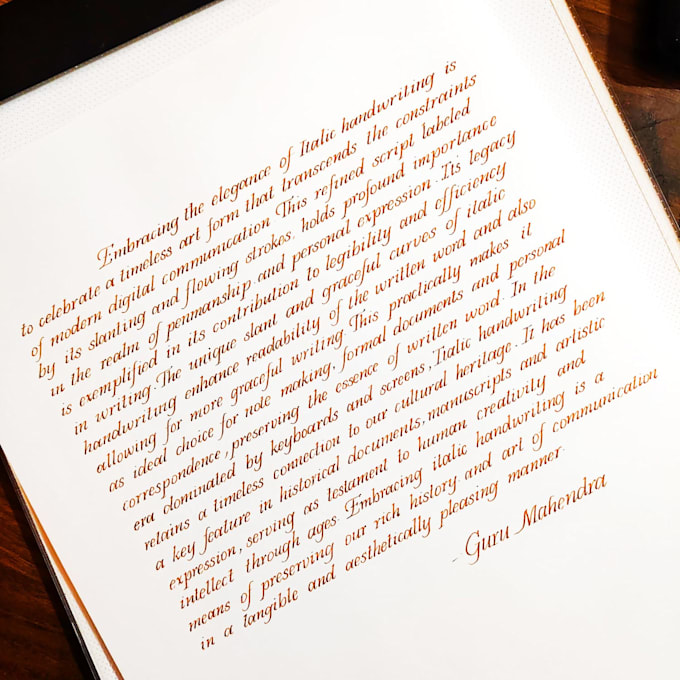 Embracing the elegance of Italic handwriting is
to celebrate a timeless art form that transcends the constraints
of modern digital communication. This refined script labeled
by its slanting and flowing strokes. holds profound importance
in the realm of penmanship and personal expression. Its legacy
is exemplified in its contribution to legibility and efficiency
in writing. The unique slant and graceful curves of italic
handwriting enhance readability of the written word and also
allowing for more graceful writing. This practically makes it
as ideal choice for note making, formal documents and personal
correspondence, preserving the essence of written word. In the
era dominated by keyboards and screens, Italic handwriting
retains a timeless connection to our cultural heritage. It has been
a key feature in historical documents, manuscripts and artistic
expression, serving as testament to human creativity and
intellect through ages. Embracing italic handwriting is a
means of preserving our rich history. and art of communication
in a tangible and aesthetically pleasing manner.
- Guru Mahendra